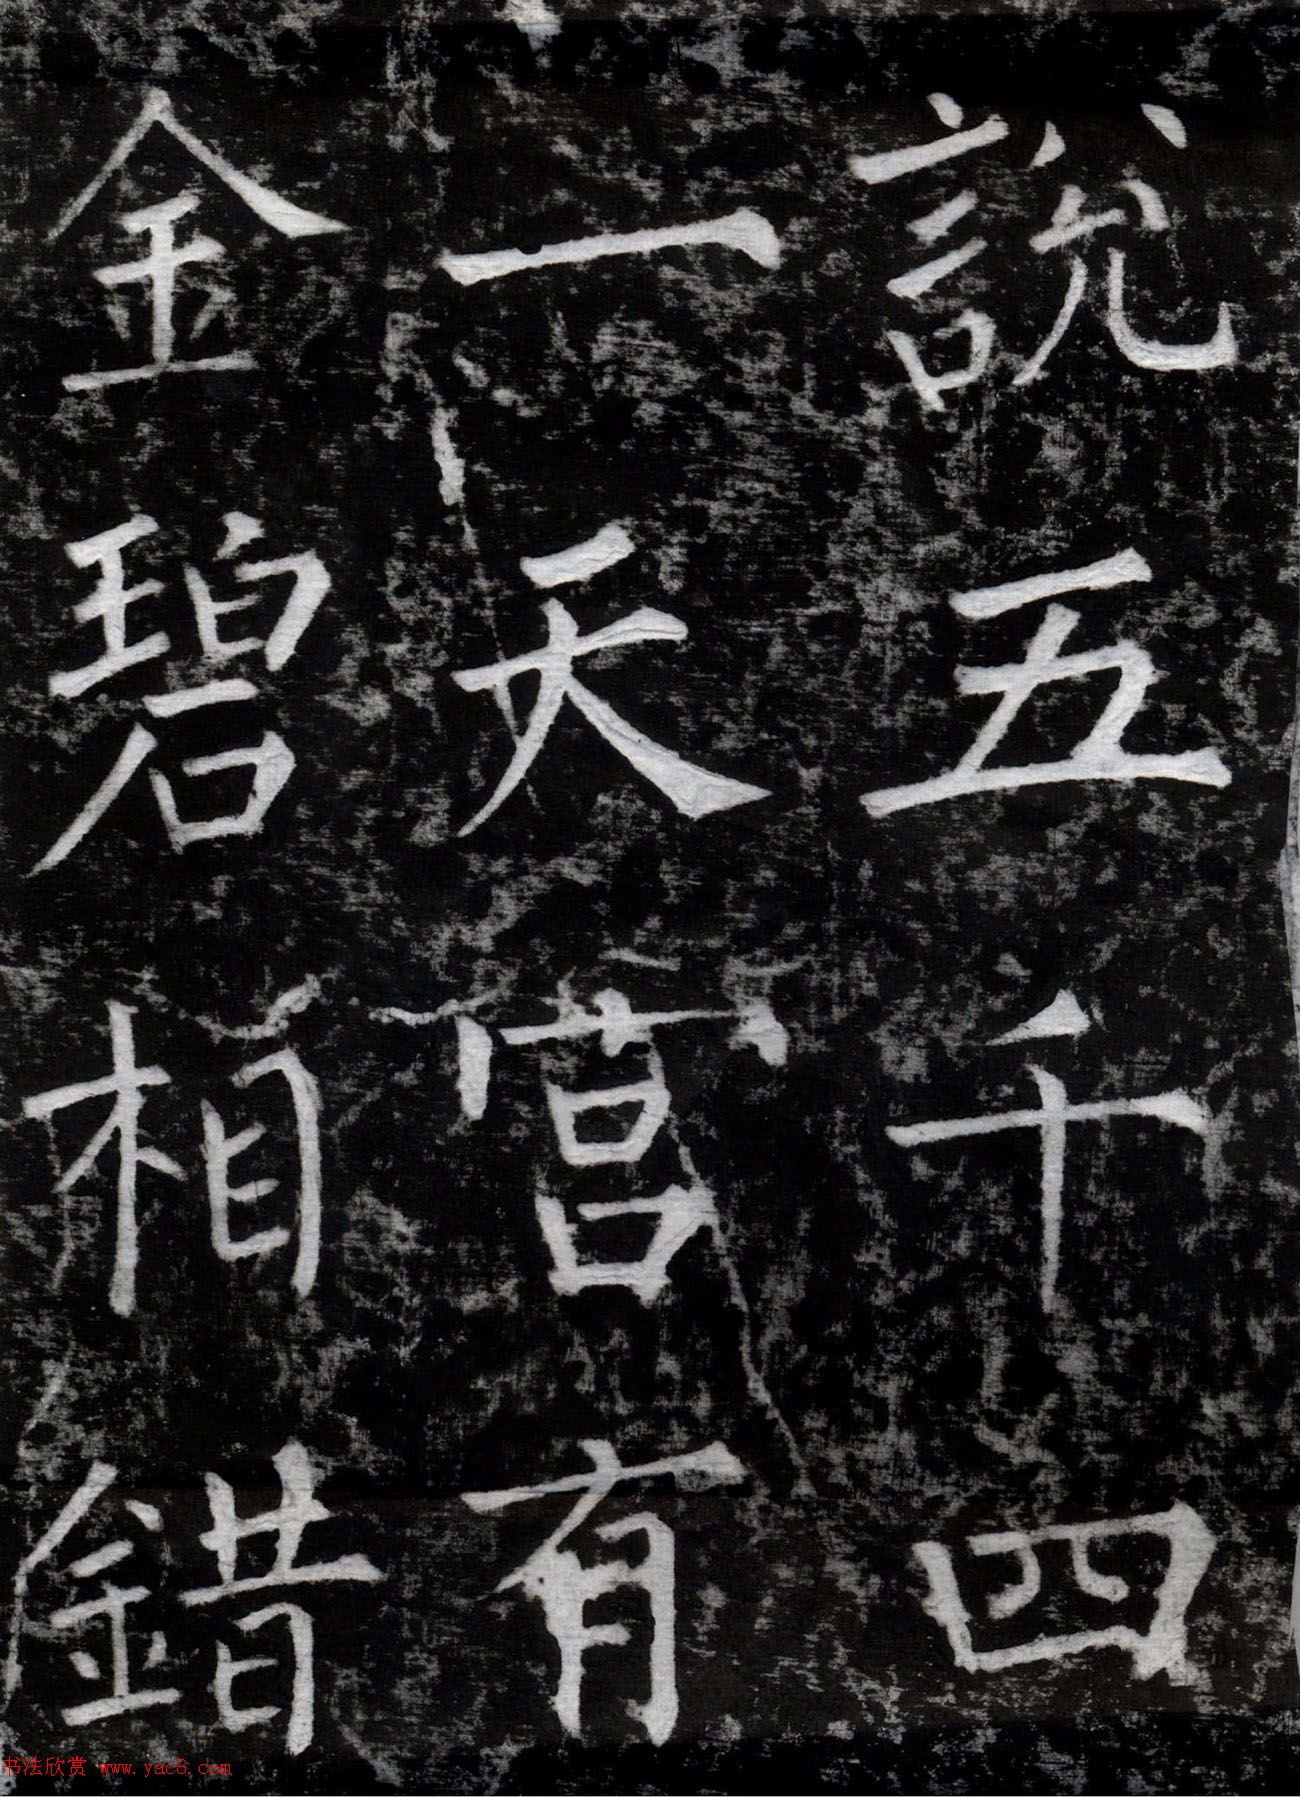 說五千四
一天宮有
金碧相錯
书法欣赏 www.yac8.com